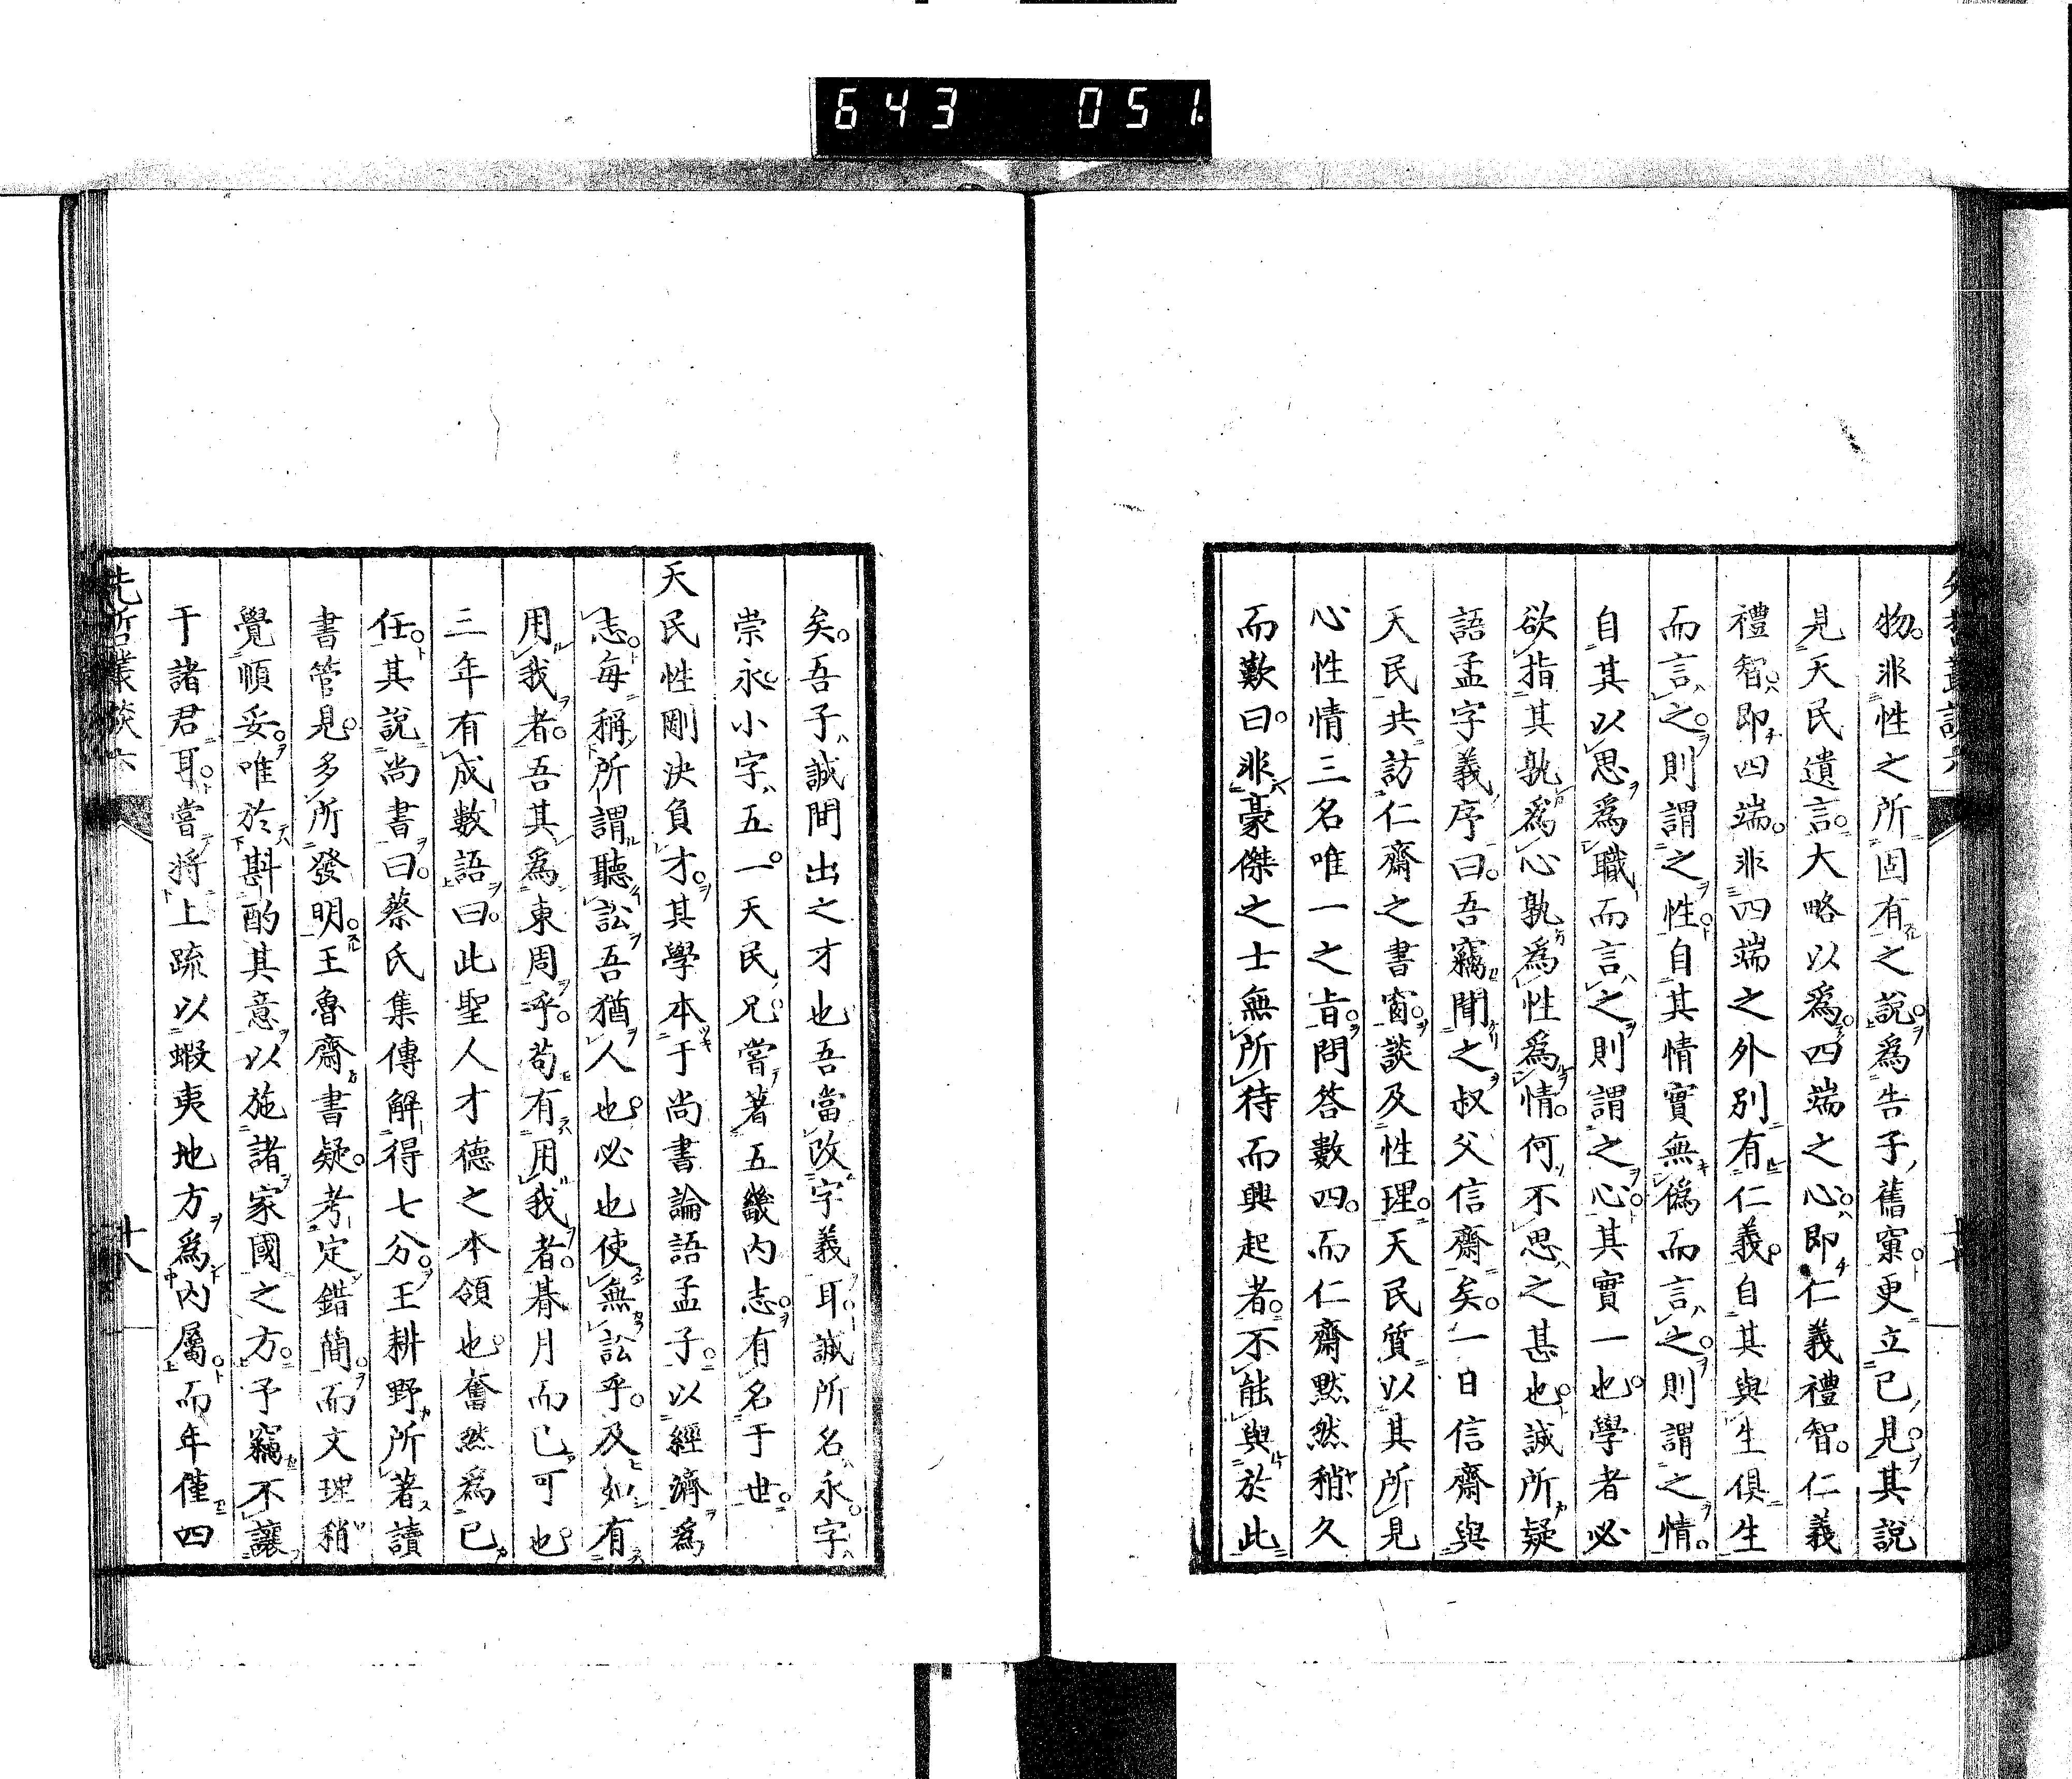 643 051
先哲叢談六
物。非性之所固有之說。為告子舊窠。更立己見。其說
見天民遺言。大略以為。四端之心。即仁義禮智。仁義
禮智。即四端。非四端之外別有仁義。自其與生俱生
而言之。則謂之性。自其情實無僞而言之。則謂之情。
自其以思為職而言之。則謂之心。其實一也。學者必
欲指其孰為心孰為性為情。何不思之甚也。誠所疑
語孟字義序曰。吾竊聞之叔父信齋矣。一日信齋與
天民共訪仁齋之書窗。談及性理。天民質以其所見
心性情三名唯一之旨。問答數四。而仁齋默然稍久
而歎曰。非豪傑之士無所待而興起者。不能與於此
矣。吾子誠間出之才也。吾當改字義耳。誠所名永。字
崇永。小字五一。天民兄。嘗著五畿內志。有名于世。
天民性剛決負才。其學本于尚書論語孟子。以經濟為
志。每稱所謂聽訟吾猶人也。必也使無訟乎。及如有
用我者。吾其為東周乎。苟有用我者。朞月而已可也
三年有成數語曰。此聖人才德之本領也。奮然為己
任。其說尚書曰。蔡氏集傳解得七分。王耕野所著讀
書管見。多所發明。王魯齋書疑。考定錯簡。而文理稍
覺順妥。唯於斟酌其意以施諸家國之方。予竊不讓
于諸君耳。嘗將上疏以蝦夷地方為內屬。而年僅四
先哲叢談六
十八